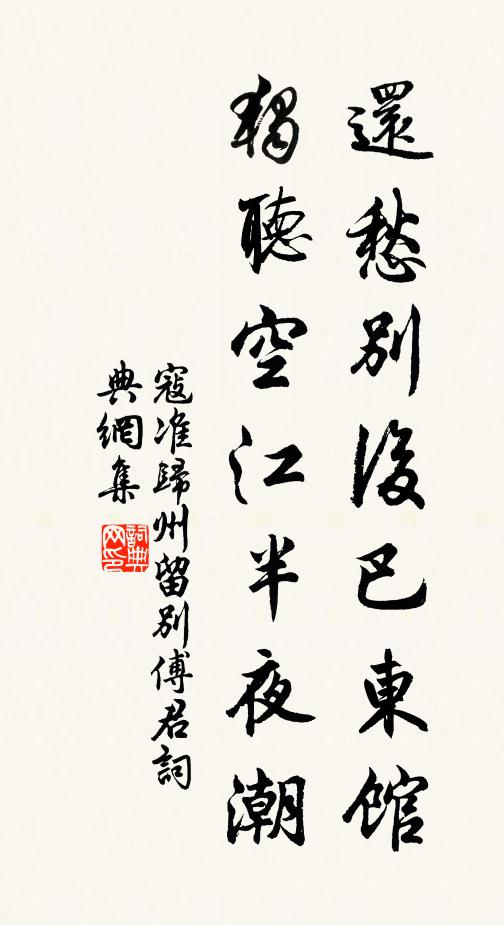 還愁別後巴東館
獨聽空江半夜潮
寇准歸州留別傅君詞
典網集
詞典网印